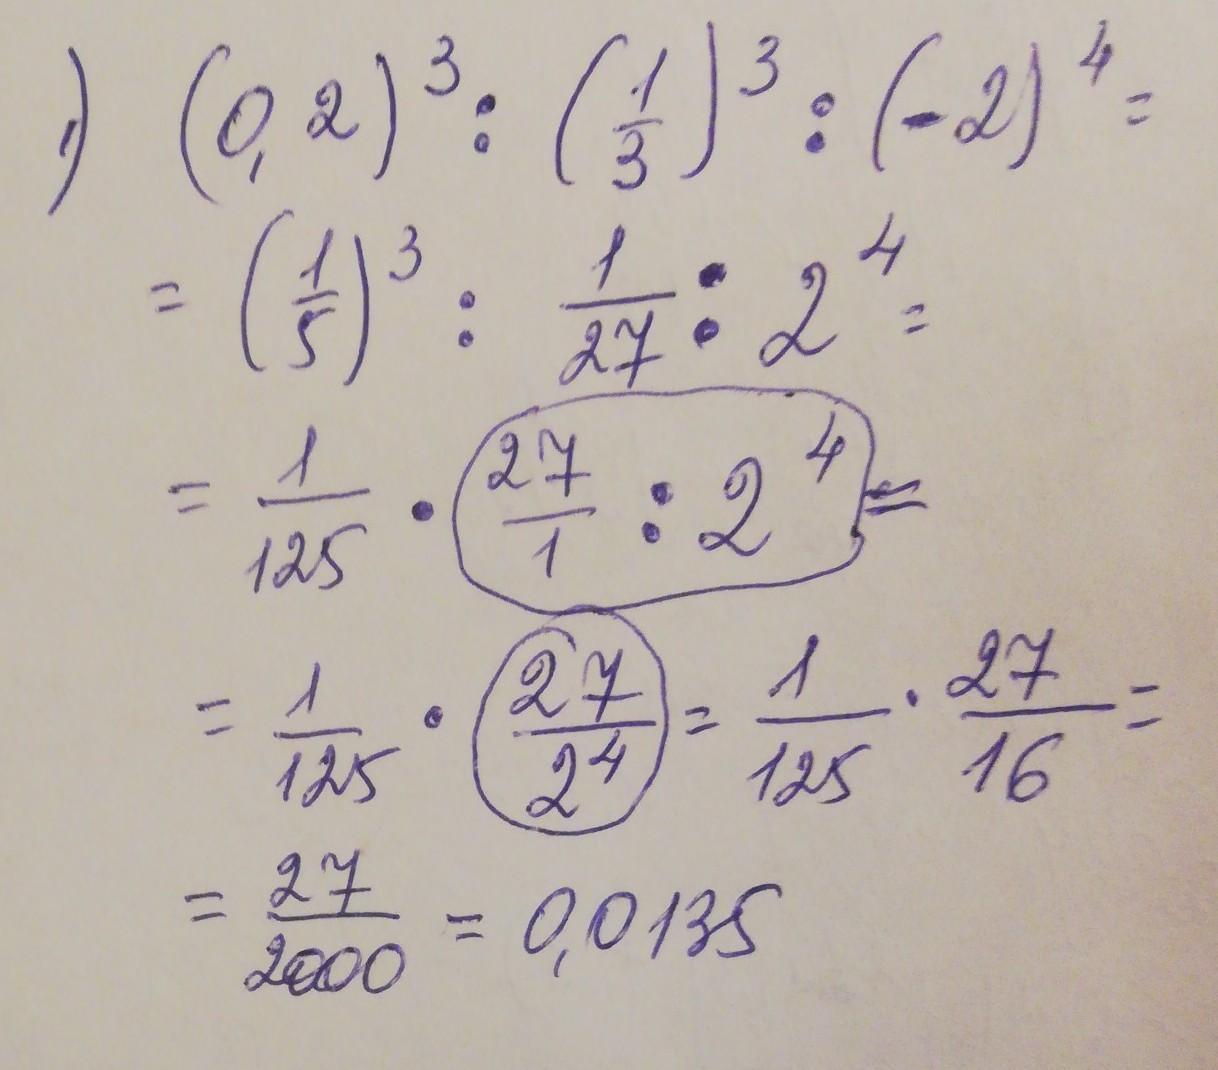 1) (0,2)³ : (1/3)³ : (-2)⁴ =
= (1/5)³ : 1/27 : 2⁴ =
= 1/125 · 27/1 : 2⁴ =
= 1/125 · 27/2⁴ = 1/125 · 27/16 =
= 27/2000 = 0,0135